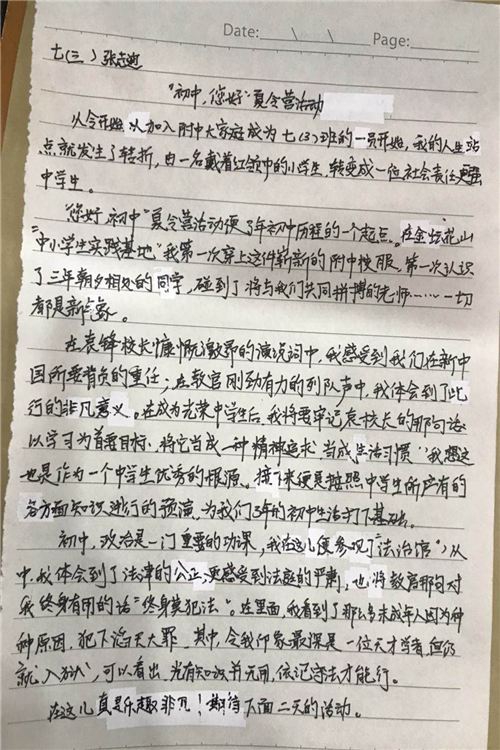 Date: \ \ \ Page:
七(三) 张志迪
"初中,您好"夏令营活动
从今开始,从加入附中大家庭成为七(3)班的一员开始,我的人生
点就发生了转折,由一名戴着红领巾的小学生,转变成一位社会责任更强
中学生。
"您好初中"夏令营活动便了年初中历程的一个起点。在金坛花山
"中小学生实践基地"我第一次穿上这件崭新的附中校服,第一次认识
了三年朝夕相处的同学,碰到了将与我们共同拼搏的老师……一切
都是新气象。
在袁锋校长慷慨激昂的演说词中,我感受到我们在新中
国所要背负的重任;在教官刚劲有力的列队声中,我体会到了此
行的非凡意义。在成为光荣中学生后,我将要牢记袁校长的那句话:
以学习为首要目标,将它当成一种精神追求,当成生活习惯"我想这
也是作为一个中学生优秀的根源。接下来便是按照中学生所应有的
各方面知识进行的预演,为我们3年的初中生活打了基础。
初中,政治是一门重要的功课,我在这儿便参观了"法治馆",从
中,我体会到了法律的公正,更感受到法庭的严肃,也将教官那句对
我终身有用的话"终身莫犯法"。在里面,我看到了那么多未成年人因为种
种原因,犯下滔天大罪。其中,令我印象最深是一位天才学者,但仍
就"入狱",可以看出,光有知识并无用,依记守法才能行。
在这儿真是乐趣非凡!期待下面二天的活动。